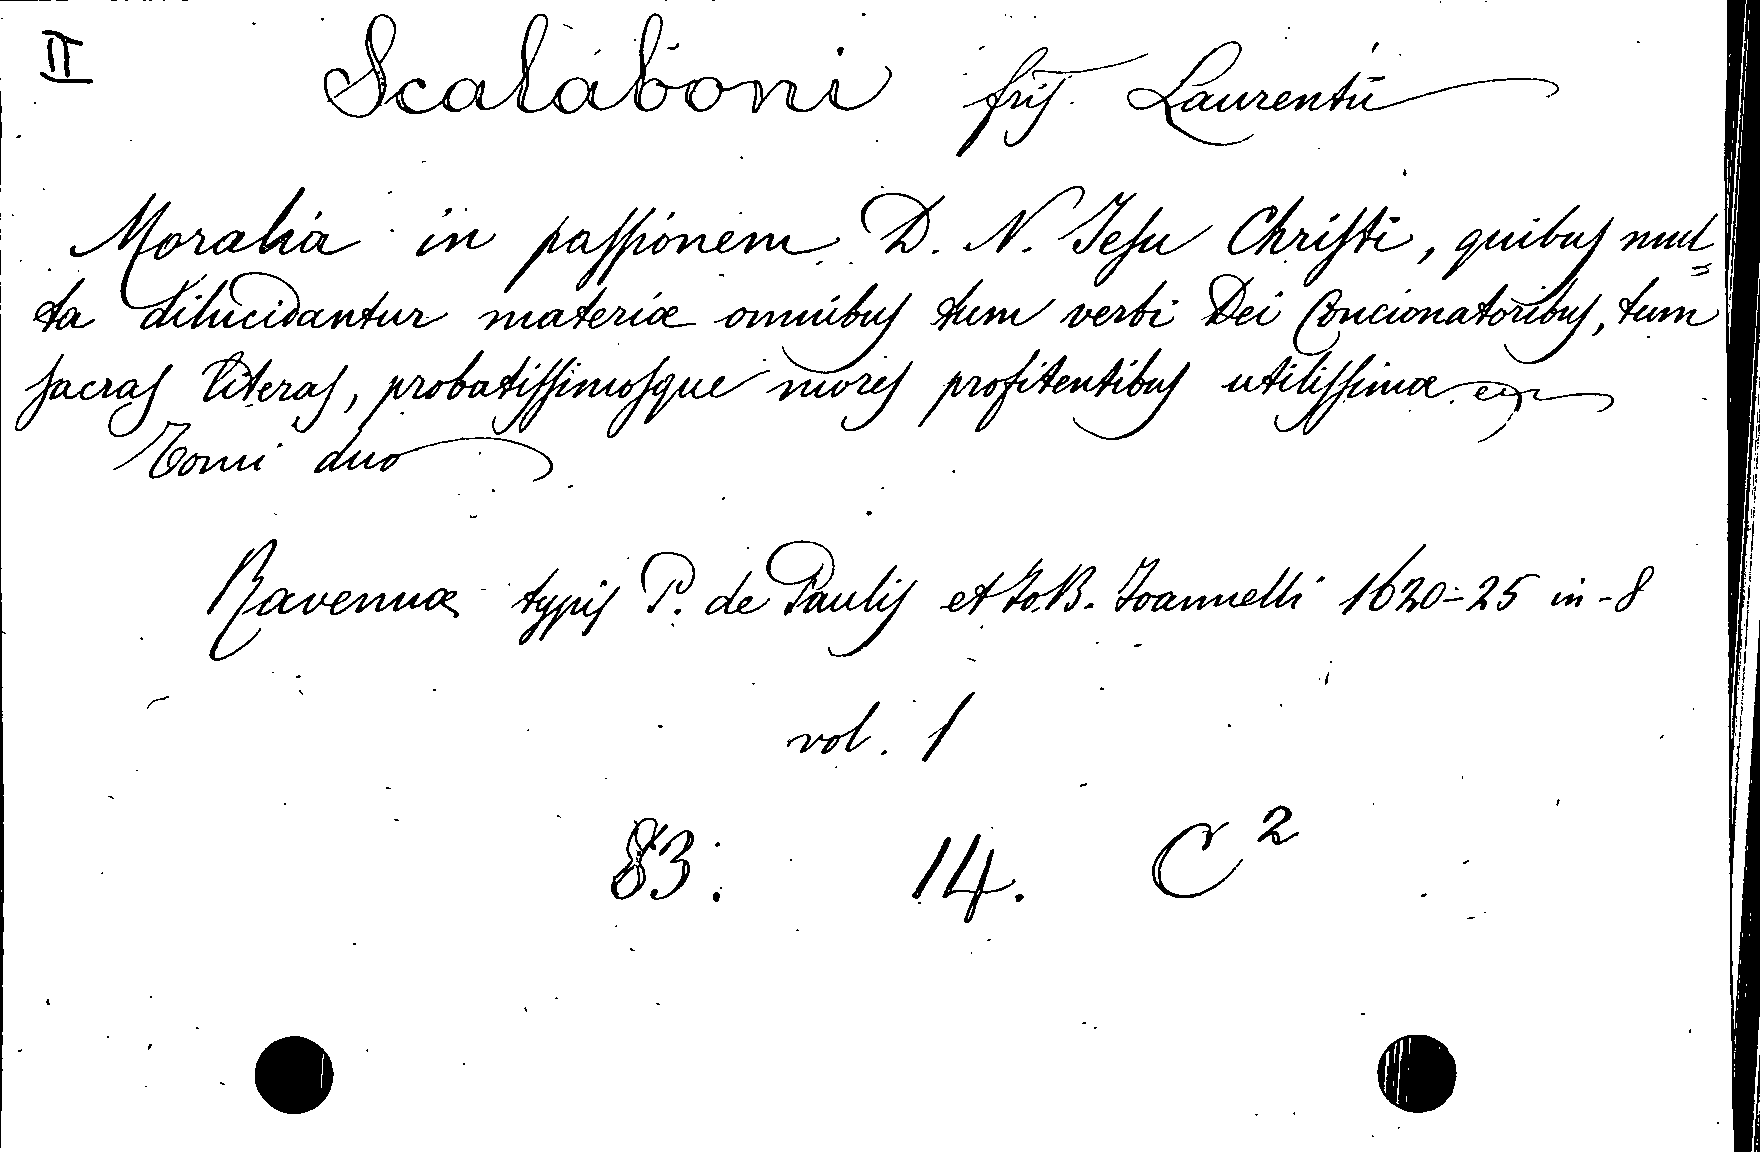 II
Scalaboni fris. Laurentii
Moralia in passionem D. N. Jesu Christi, quibus mul=
ta dilucidantur materiæ omnibus tum verbi Dei Concionatoribus, tum
sacras literas, probatissimosque mores profitentibus utilissimæ
Tomi duo
Ravennæ typis P. de Paulis et Jo. B. Joannelli 1620-25 in-8
vol. 1
83. 14. C²